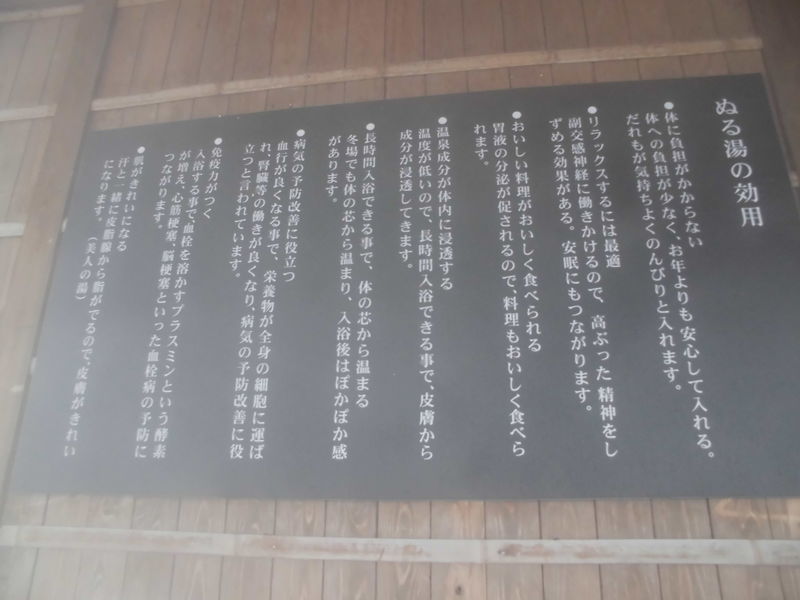 ぬる湯の効用
●体に負担がかからない
体への負担が少なく、お年よりも安心して入れる。
だれもが気持ちよくのんびりと入れます。
●リラックスするには最適
副交感神経に働きかけるので、高ぶった精神をし
ずめる効果がある。安眠にもつながります。
●おいしい料理がおいしく食べられる
胃液の分泌が促されるので、料理もおいしく食べら
れます。
●温泉成分が体内に浸透する
温度が低いので、長時間入浴できる事で、皮膚から
成分が浸透してきます。
●長時間入浴できる事で、体の芯から温まる
冬場でも体の芯から温まり、入浴後はぽかぽか感
があります。
●病気の予防改善に役立つ
血行が良くなる事で、栄養物が全身の細胞に運ば
れ、腎臓等の働きが良くなり、病気の予防改善に役
立つと言われています。
●免疫力がつく
入浴する事で、血栓を溶かすプラスミンという酵素
が増え、心筋梗塞、脳梗塞といった血栓病の予防に
つながります。
●肌がきれいになる
汗と一緒に皮脂線から脂がでるので、皮膚がきれい
になります。(美人の湯)